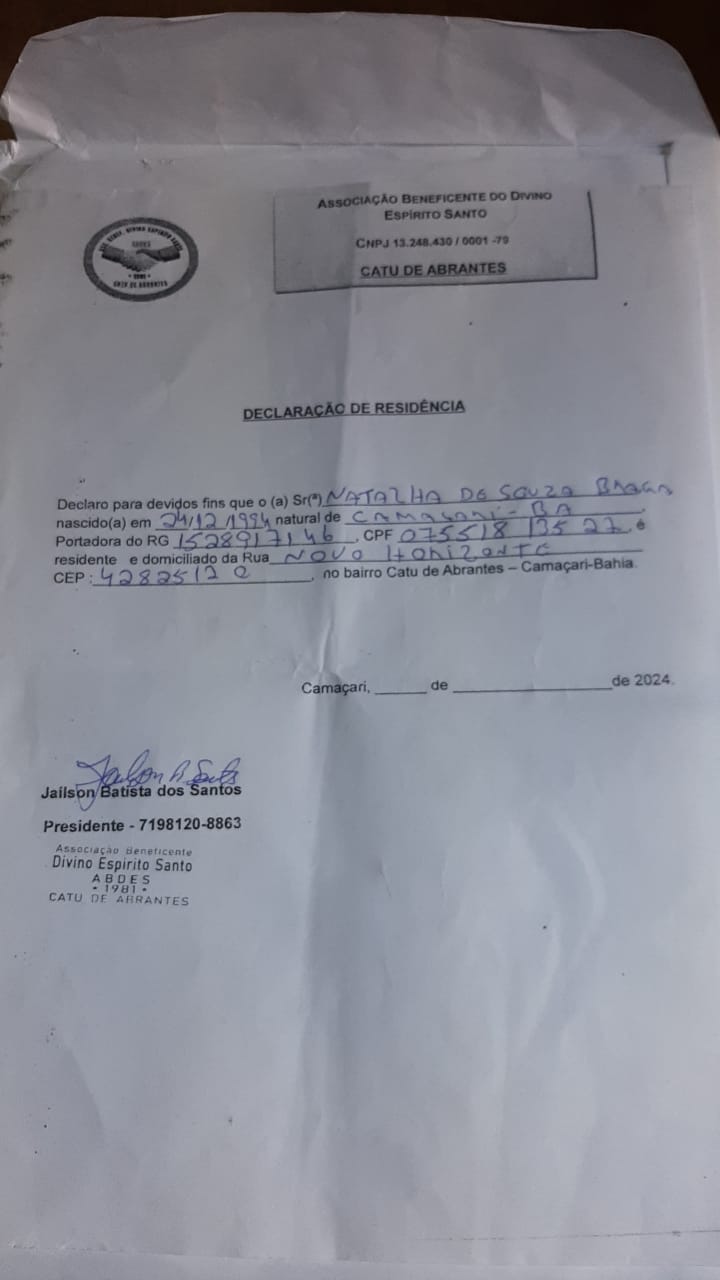 ASSOCIAÇÃO BENEFICENTE DO DIVINO
ESPÍRITO SANTO
CNPJ 13.248.430 / 0001 -79
CATU DE ABRANTES
CATU DE ABRANTES
DECLARAÇÃO DE RESIDÊNCIA
Declaro para devidos fins que o (a) Sr(ª) NATALHA DE SOUZA BRAGA
nascido(a) em 24/12/1994 natural de CAMAÇARI - BA
Portadora do RG 1528917146, CPF 075518 135 27, é
residente e domiciliado da Rua NOVO HORIZONTE
CEP : 42825120, no bairro Catu de Abrantes – Camaçari-Bahia.
Camaçari, ______ de ____________________ de 2024.
Jailson B Santos
Jailson Batista dos Santos
Presidente - 7198120-8863
Associação Beneficente
Divino Espirito Santo
ABDES
• 1981 •
CATU DE ABRANTES